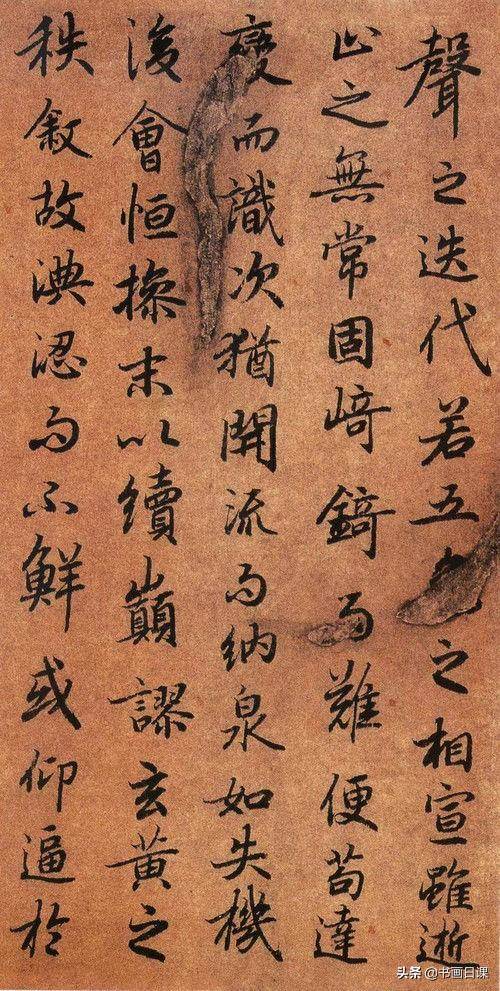 聲之迭代若五之相宣雖逝
止之無常固崎錡而難便苟達
變而識次猶開流而納泉如失機
後會恒操末以續巔謬玄黃之
秩敘故淟涊而不鮮或仰逼於
头条 @书画日课